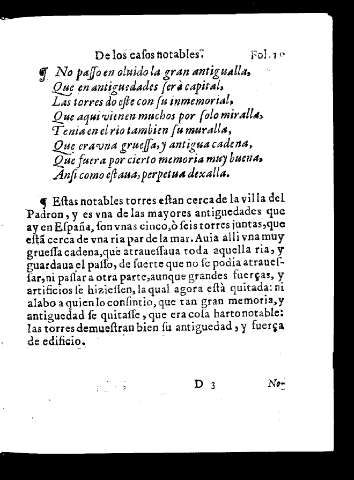 De los casos notables. Fol.
¶ No passo en oluido la gran antigualla,
Que en antiguedades serà capital,
Las torres do este con su inmemorial,
Que aqui vienen muchos por solo miralla,
Tenia en el rio tambien su muralla,
Que era vna gruessa, y antigua cadena,
Que fuera por cierto memoria muy buena,
Ansi como estaua, perpetua dexalla.
¶ Estas notables torres estan cerca de la villa del
Padron, y es vna de las mayores antiguedades que
ay en España, son vnas cinco, ò seis torres juntas, que
està cerca de vna ria par de la mar. Auia alli vna muy
gruessa cadena, que atrauessaua toda aquella ria, y
guardaua el passo, de suerte que no se podia atraues-
sar, ni passar a otra parte, aunque grandes fuerças, y
artificios se hiziessen, la qual agora està quitada: ni
alabo a quien lo consintio, que tan gran memoria, y
antiguedad se quitasse, que era cosa harto notable:
las torres demuestran bien su antiguedad, y fuerça
de edificio.
D 3 No-